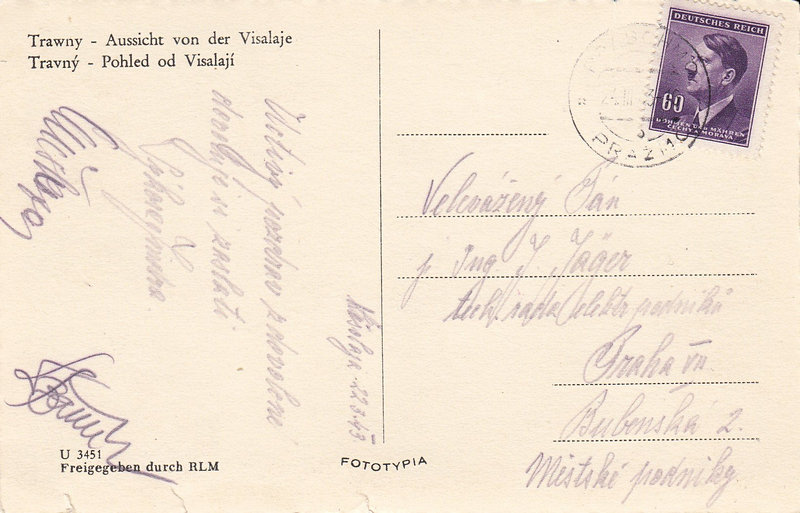 Trawny - Aussicht von der Visalaje
Travný - Pohled od Visalají
DEUTSCHES REICH
60
BÖHMEN UND MÄHREN
ČECHY A MORAVA
PRAŽMO
Velevážený Pán
p Ing J Jäger
tech rada elektr podniků
Praha VII
Bubenská 2.
Městské podniky.
Uctivý pozdrav z dovolené
dovoluje si zaslati
22.3.43
U 3451
Freigegeben durch RLM
FOTOTYPIA